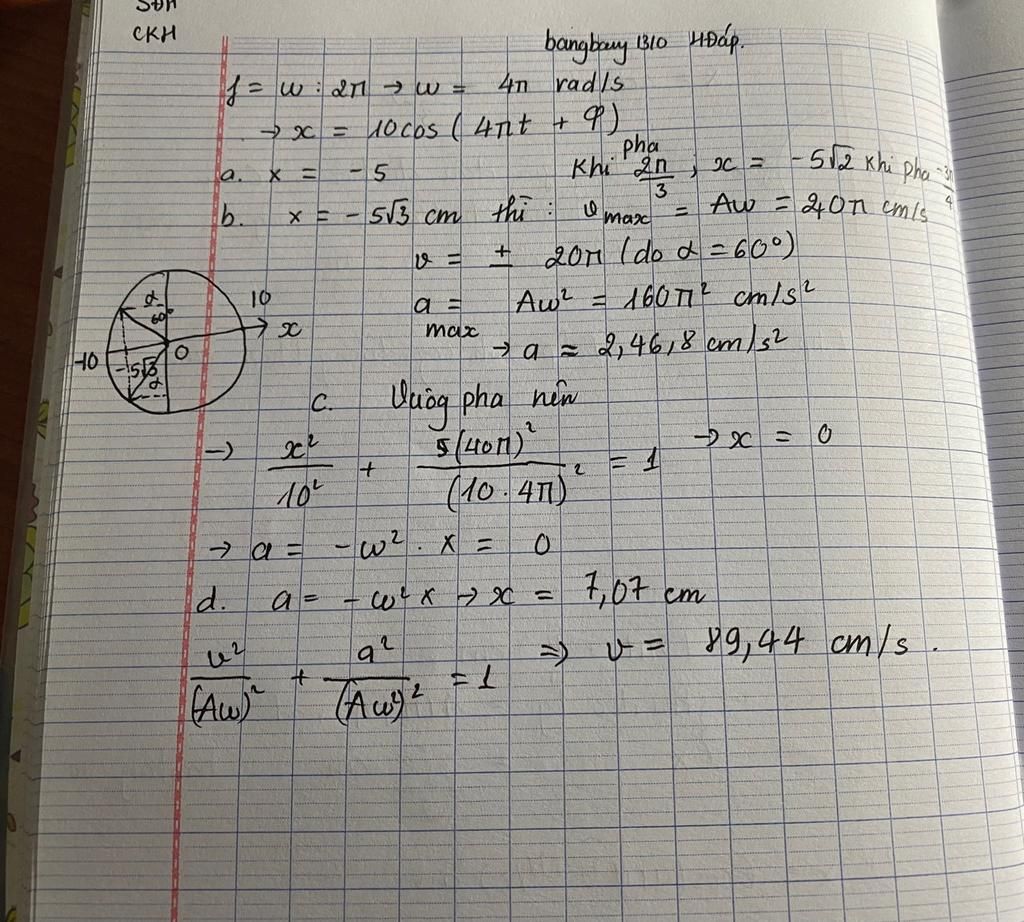 SĐH
CKH
bangbay 1310 HĐáp.
f = w : 2π → w = 4π rad/s
→ x = 10cos (4πt + φ)
a. x = -5 Khi pha 2π/3 ; x = -5√2 Khi pha -3π/4
b. x = -5√3 cm thì : v max = Aw = 40π cm/s
v = ± 20π (do α = 60°)
a max = Aw² = 160π² cm/s²
→ a = 2,46,8 cm/s²
α
60°
10
x
-10
O
-5√3
α
c. Vuôg pha nên
→ x²/10² + (40π)²/(10.4π)² = 1 → x = 0
→ a = -w² . x = 0
d. a = -w²x → x = 7,07 cm
v²/(Aw)² + a²/(Aw²)² = 1 => v = 89,44 cm/s.